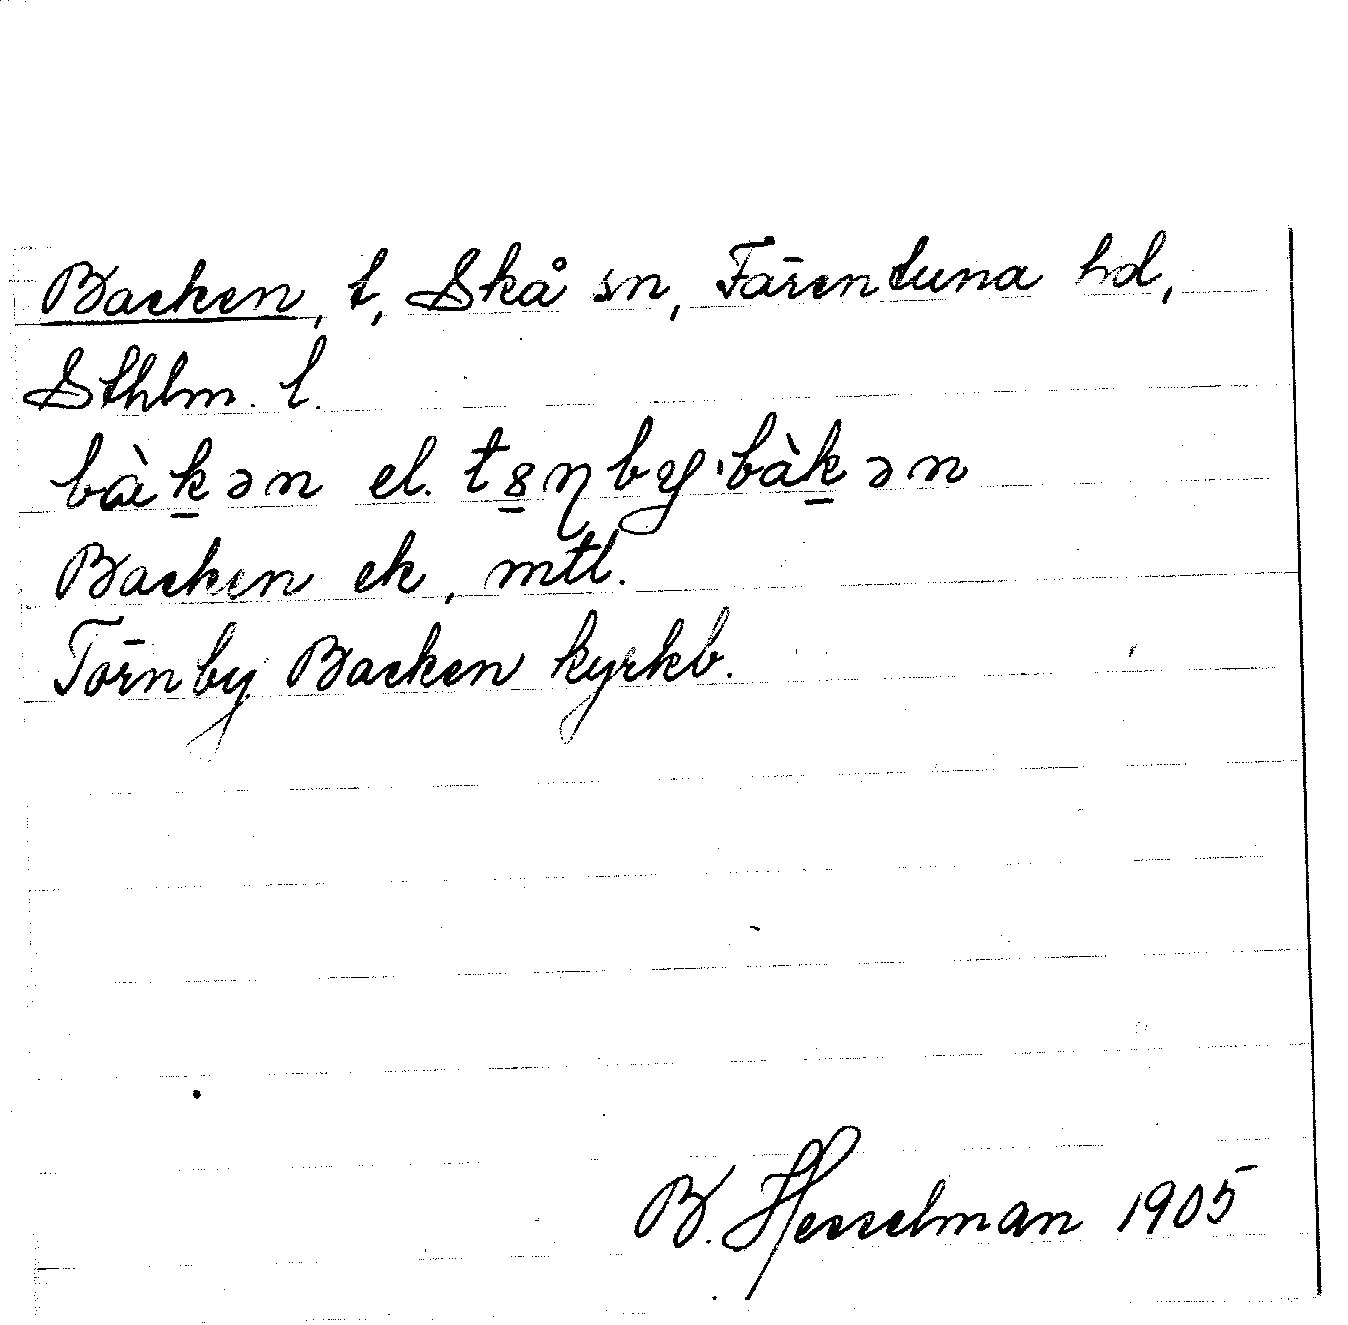 Backen, t, Skå sn, Färentuna hd,
Sthlm. l.
bàk̲ən el. ts̲ηby·bàk̲ən
Backen ek, mtl.
Törnby Backen kyrkb.
B. Hesselman 1905